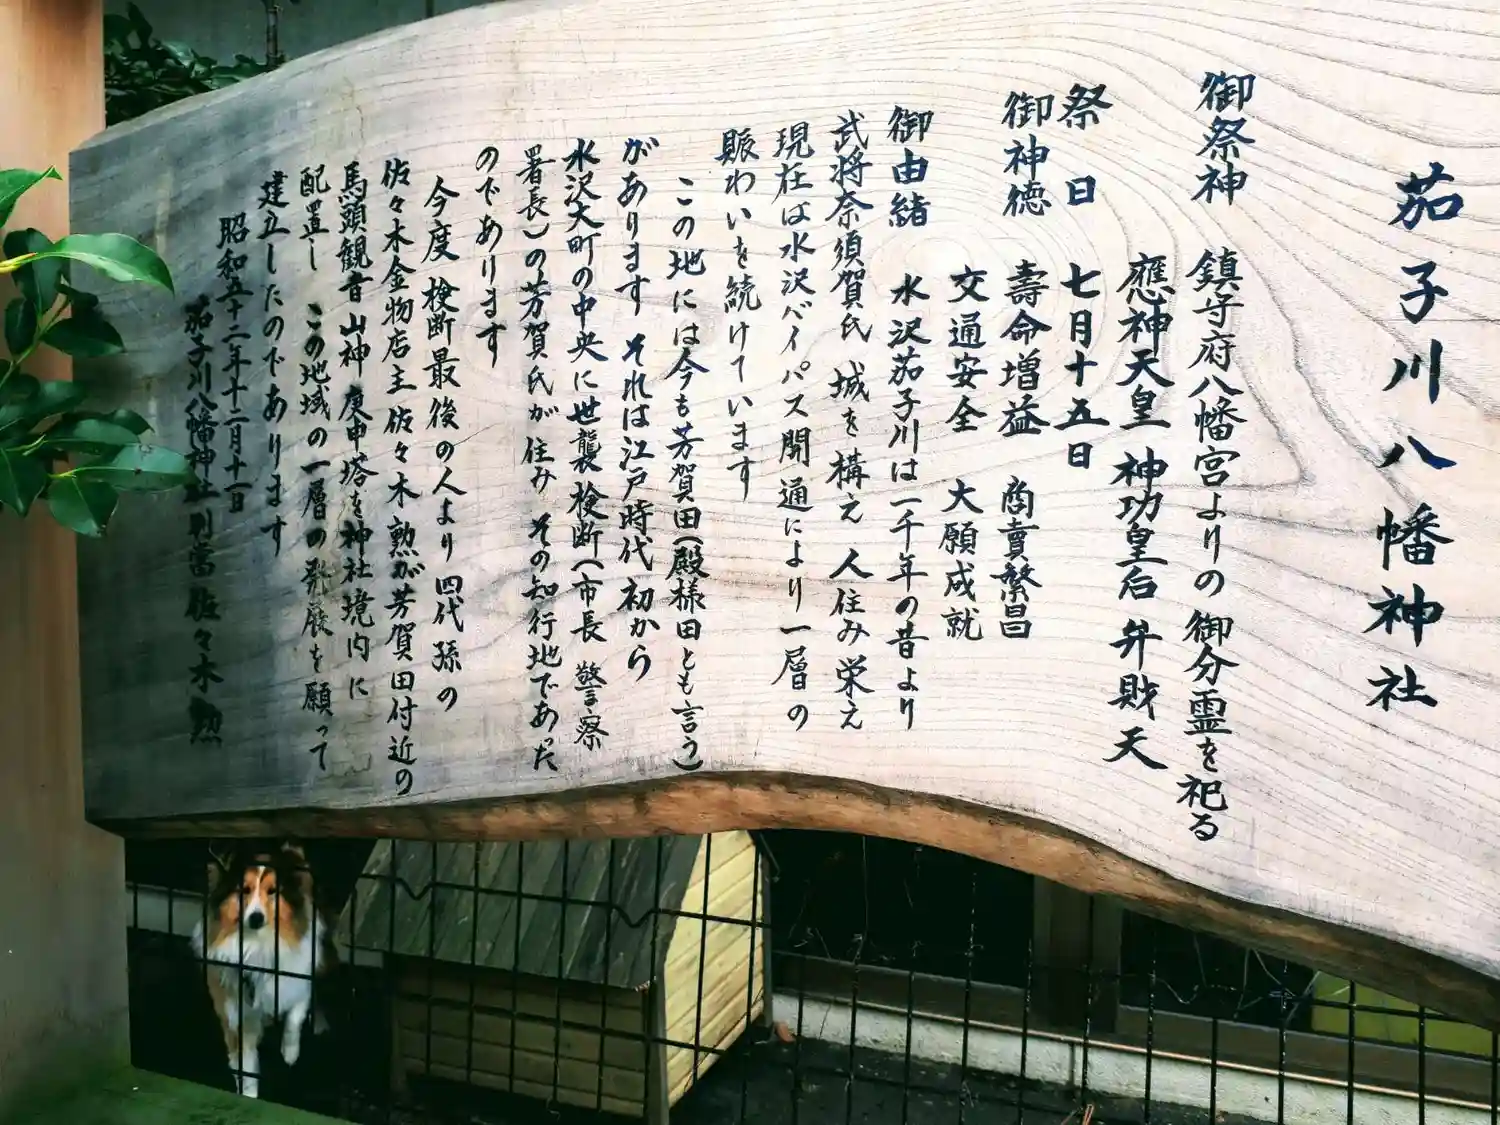 茄子川八幡神社
御祭神 鎮守府八幡宮よりの 御分霊を祀る
應神天皇 神功皇后 弁財天
祭日 七月十五日
御神徳 壽命増益 商賣繁昌
交通安全 大願成就
御由緒 水沢茄子川は一千年の昔より
武将奈須賀氏 城を構え 人住み栄え
現在は水沢バイパス開通により一層の
賑わいを続けています
この地には今も芳賀田(殿様田とも言う)
があります それは江戸時代初から
水沢大町の中央に世襲検断(市長 警察
署長)の芳賀氏が住み その知行地であった
のであります
今度 検断最後の人より四代孫の
佐々木金物店主佐々木勲が芳賀田付近の
馬頭観音山神 庚申塔を神社境内に
配置し この地域の一層の発展を願って
建立したのであります
昭和五十二年十二月十一日
茄子川八幡神社別當 佐々木勲